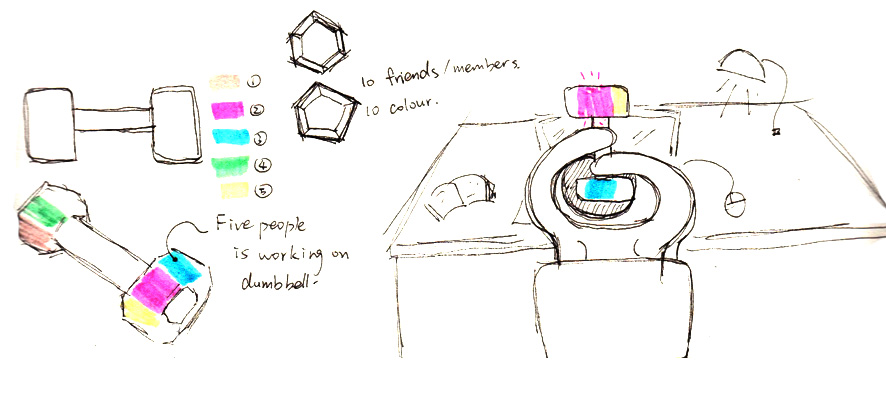 ①
②
③
④
⑤
10 friends/members.
10 colour.
Five people
is working on
dumbbell.